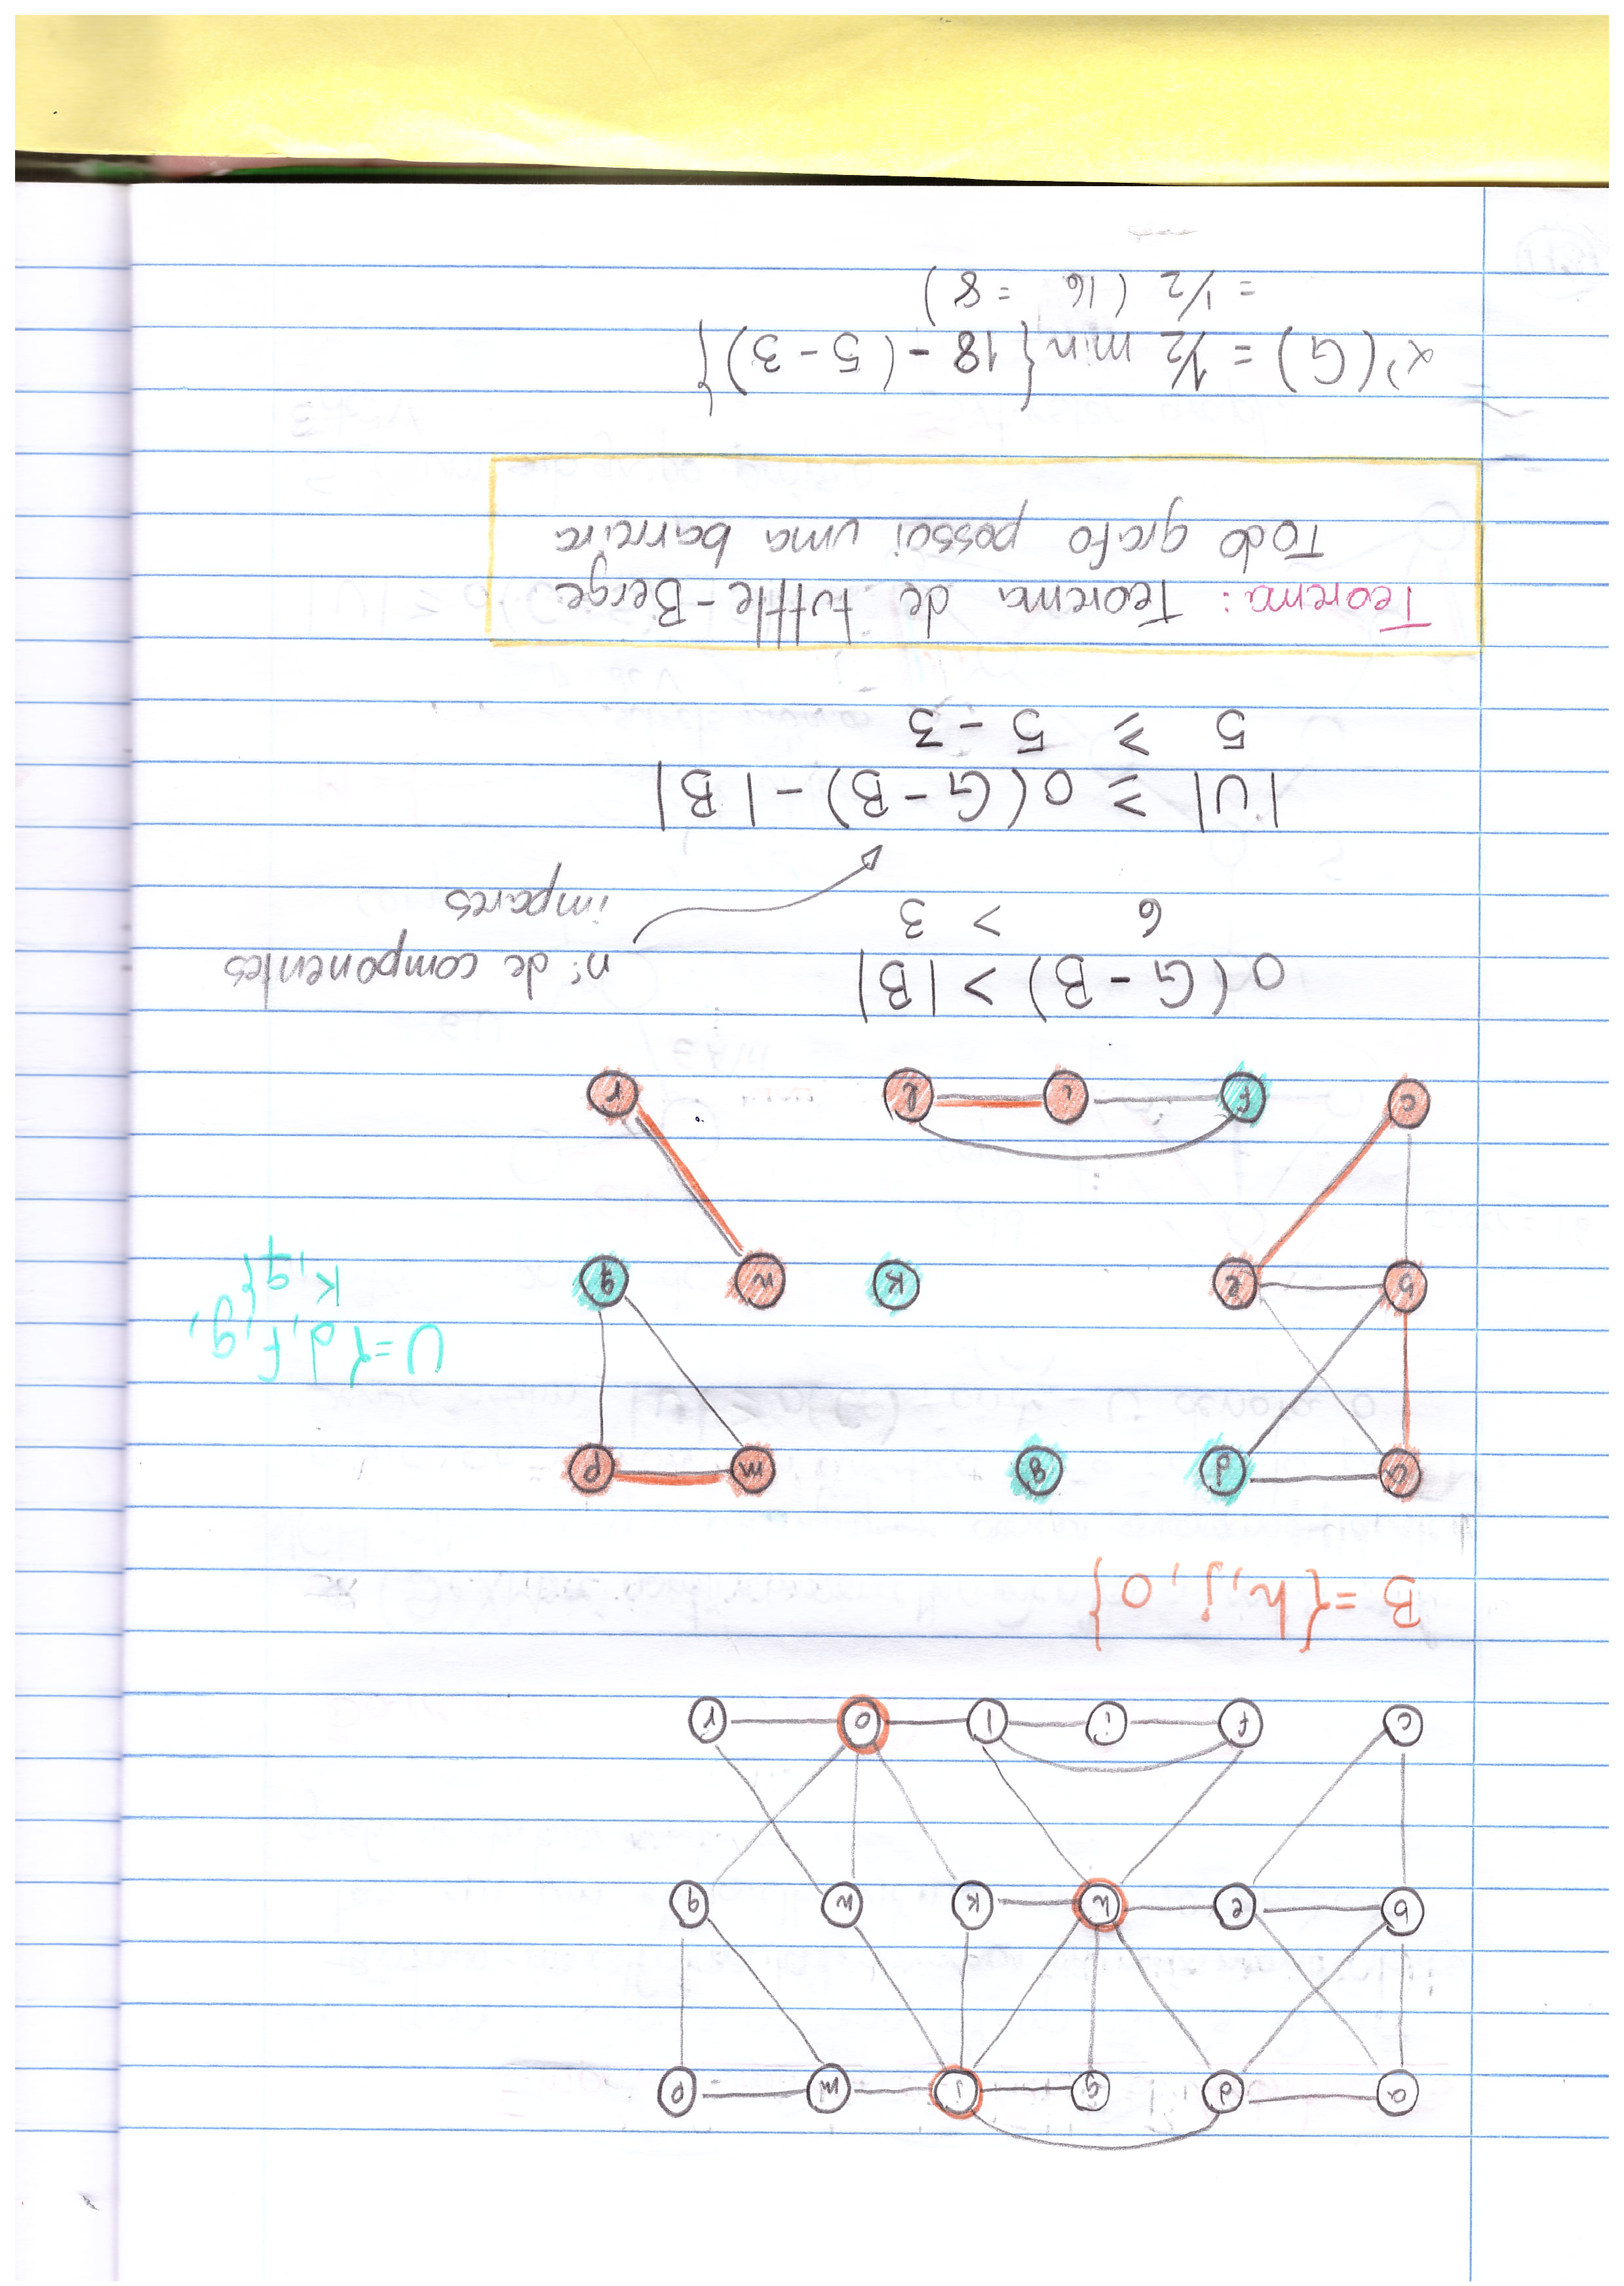 a d g j m p
b e h k n q
c f i l o r
B = {h, j, o}
a d g m p
U = {d, f, g,
k, q}
b e k n q
c f i l r
o(G - B) > |B|
6 > 3
nº de componentes
impares
|U| ≥ o(G - B) - |B|
5 ≥ 5 - 3
Teorema: Teorema de tuttle-Berge
Todo grafo possui uma barreira
α'(G) = 1/2 min{18 - (5 - 3)}
= 1/2 (16 = 8)